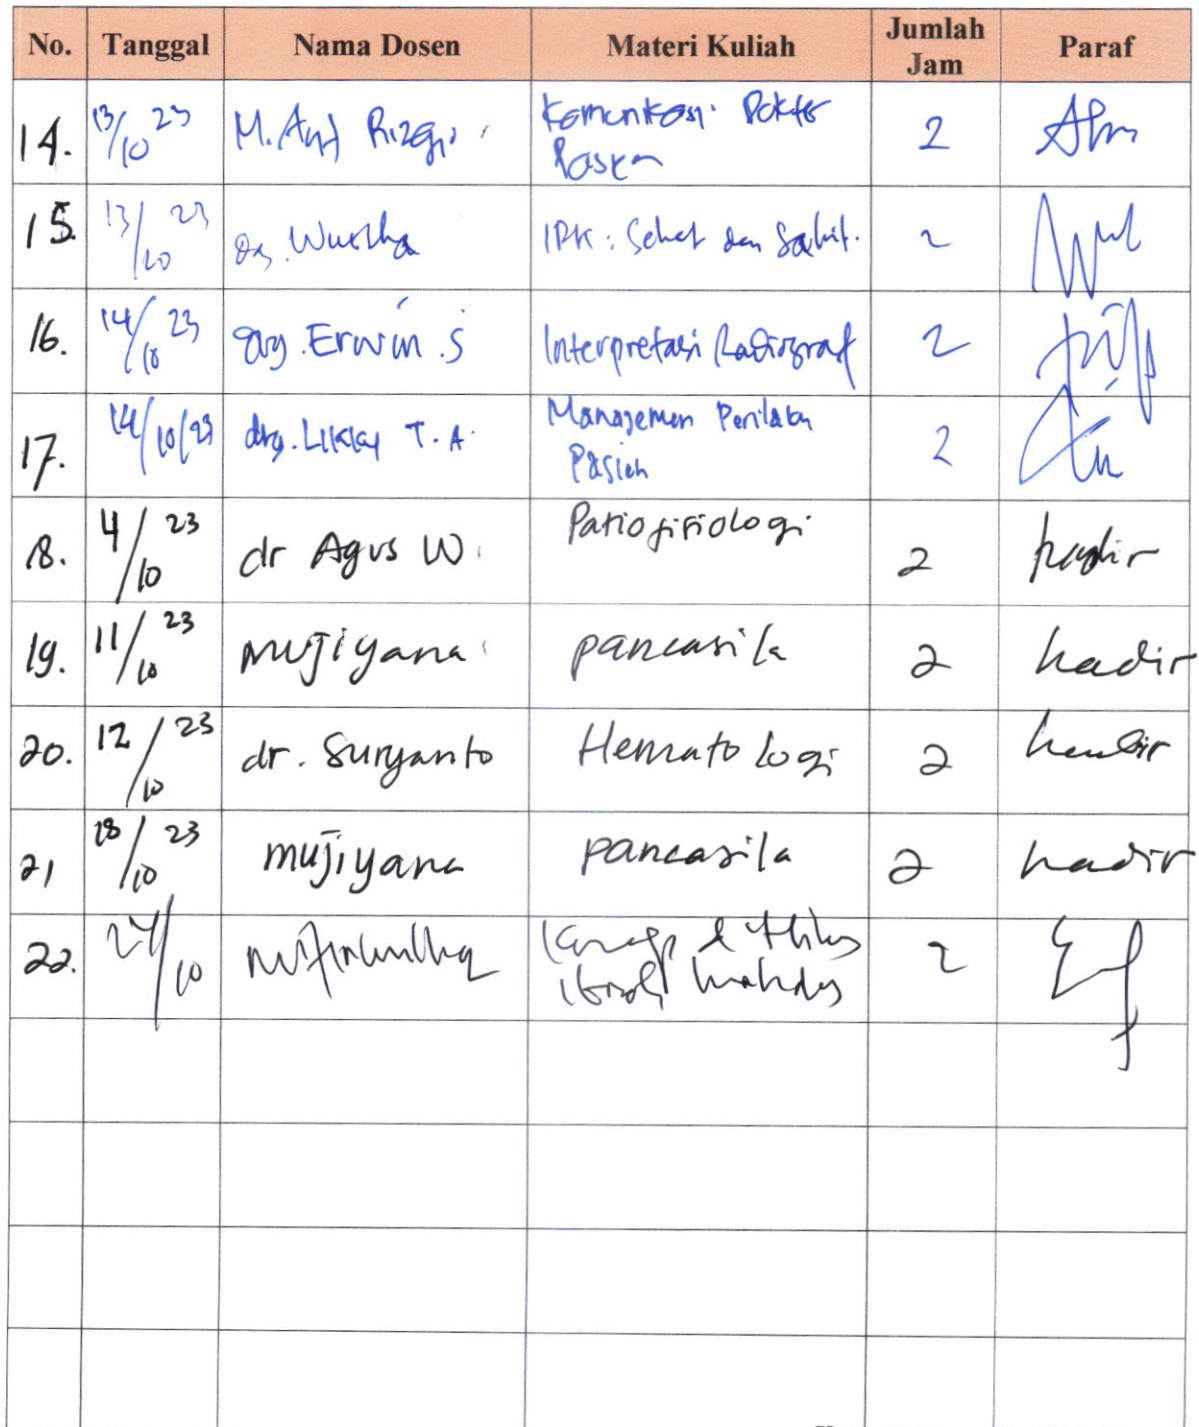 No. Tanggal Nama Dosen Materi Kuliah Jumlah Jam Paraf
14. 13/10 23 M. Rizqi Komunikasi Dokter 2
Pasien
15. 13/10 23 IPK: Sehat dan Sakit. 2
16. 14/10 23 drg. Erwin .S Interpretasi Radiograf 2
17. 14/10/23 drg. T. A. Manajemen Perilaku 2
Pasien
18. 4/10 23 dr Agus W. Patiofisiologi 2 hadir
19. 11/10 23 mujiyana pancasila 2 hadir
20. 12/10 23 dr. Suryanto Hematologi 2 hadir
21 18/10 23 mujiyana pancasila 2 hadir
22. 24/10 2